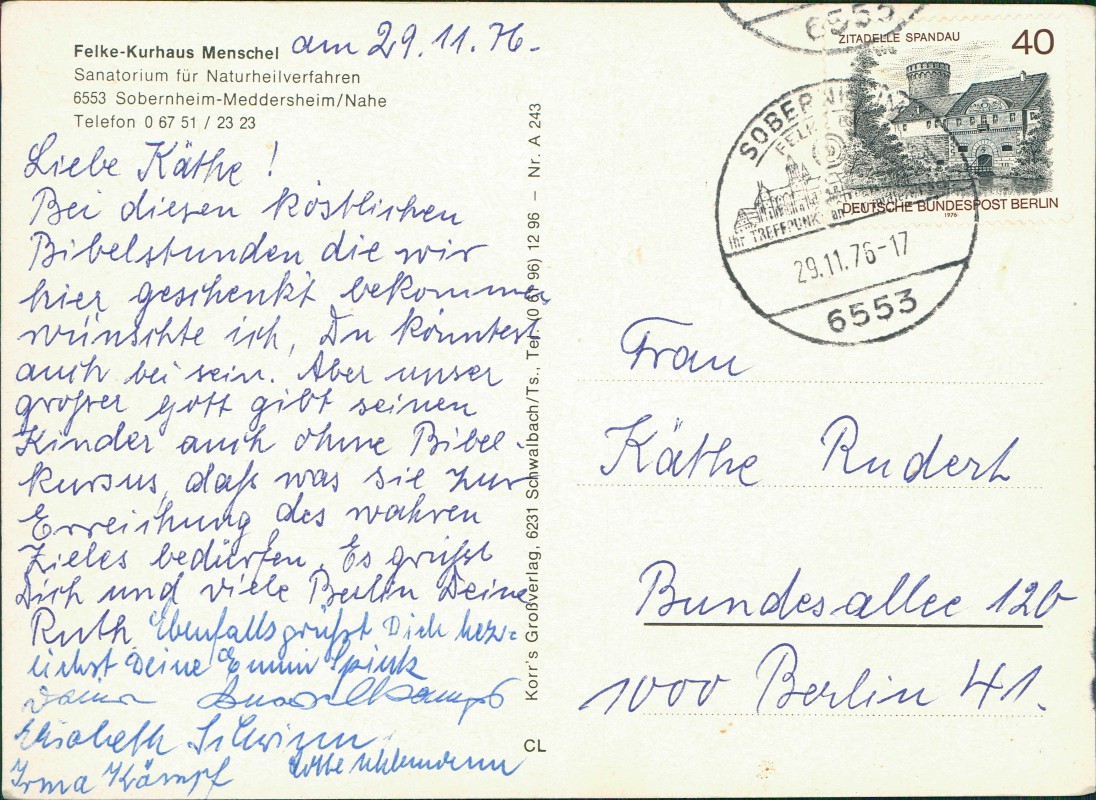 Felke-Kurhaus Menschel am 29.11.76.
Sanatorium für Naturheilverfahren
6553 Sobernheim-Meddersheim/Nahe
Telefon 0 67 51 / 23 23
Liebe Käthe!
Bei diesen köstlichen
Bibelstunden die wir
hier geschenkt bekommen
wünschte ich, Du könntest
auch bei sein. Aber unser
großer Gott gibt seinen
Kinder auch ohne Bibel-
kursus, daß was sie zur
Erreichung des wahren
Zieles bedürfen. Es grüßt
Dich und viele Berlin Deine
Ruth. Ebenfalls grüßt Dich herz-
lichst Deine Emmi
Elisabeth
Irma Kämpf Lotte
Korr's Großverlag, 6231 Schwalbach/Ts., Tel. (0 61 96) 12 96 – Nr. A 243
CL
6553
ZITADELLE SPANDAU
40
DEUTSCHE BUNDESPOST BERLIN
1976
SOBERNHEIM
FELKE
IHR TREFFPUNKT
29.11.76-17
6553
Frau
Käthe Rudert
Bundesallee 120
1000 Berlin 41.